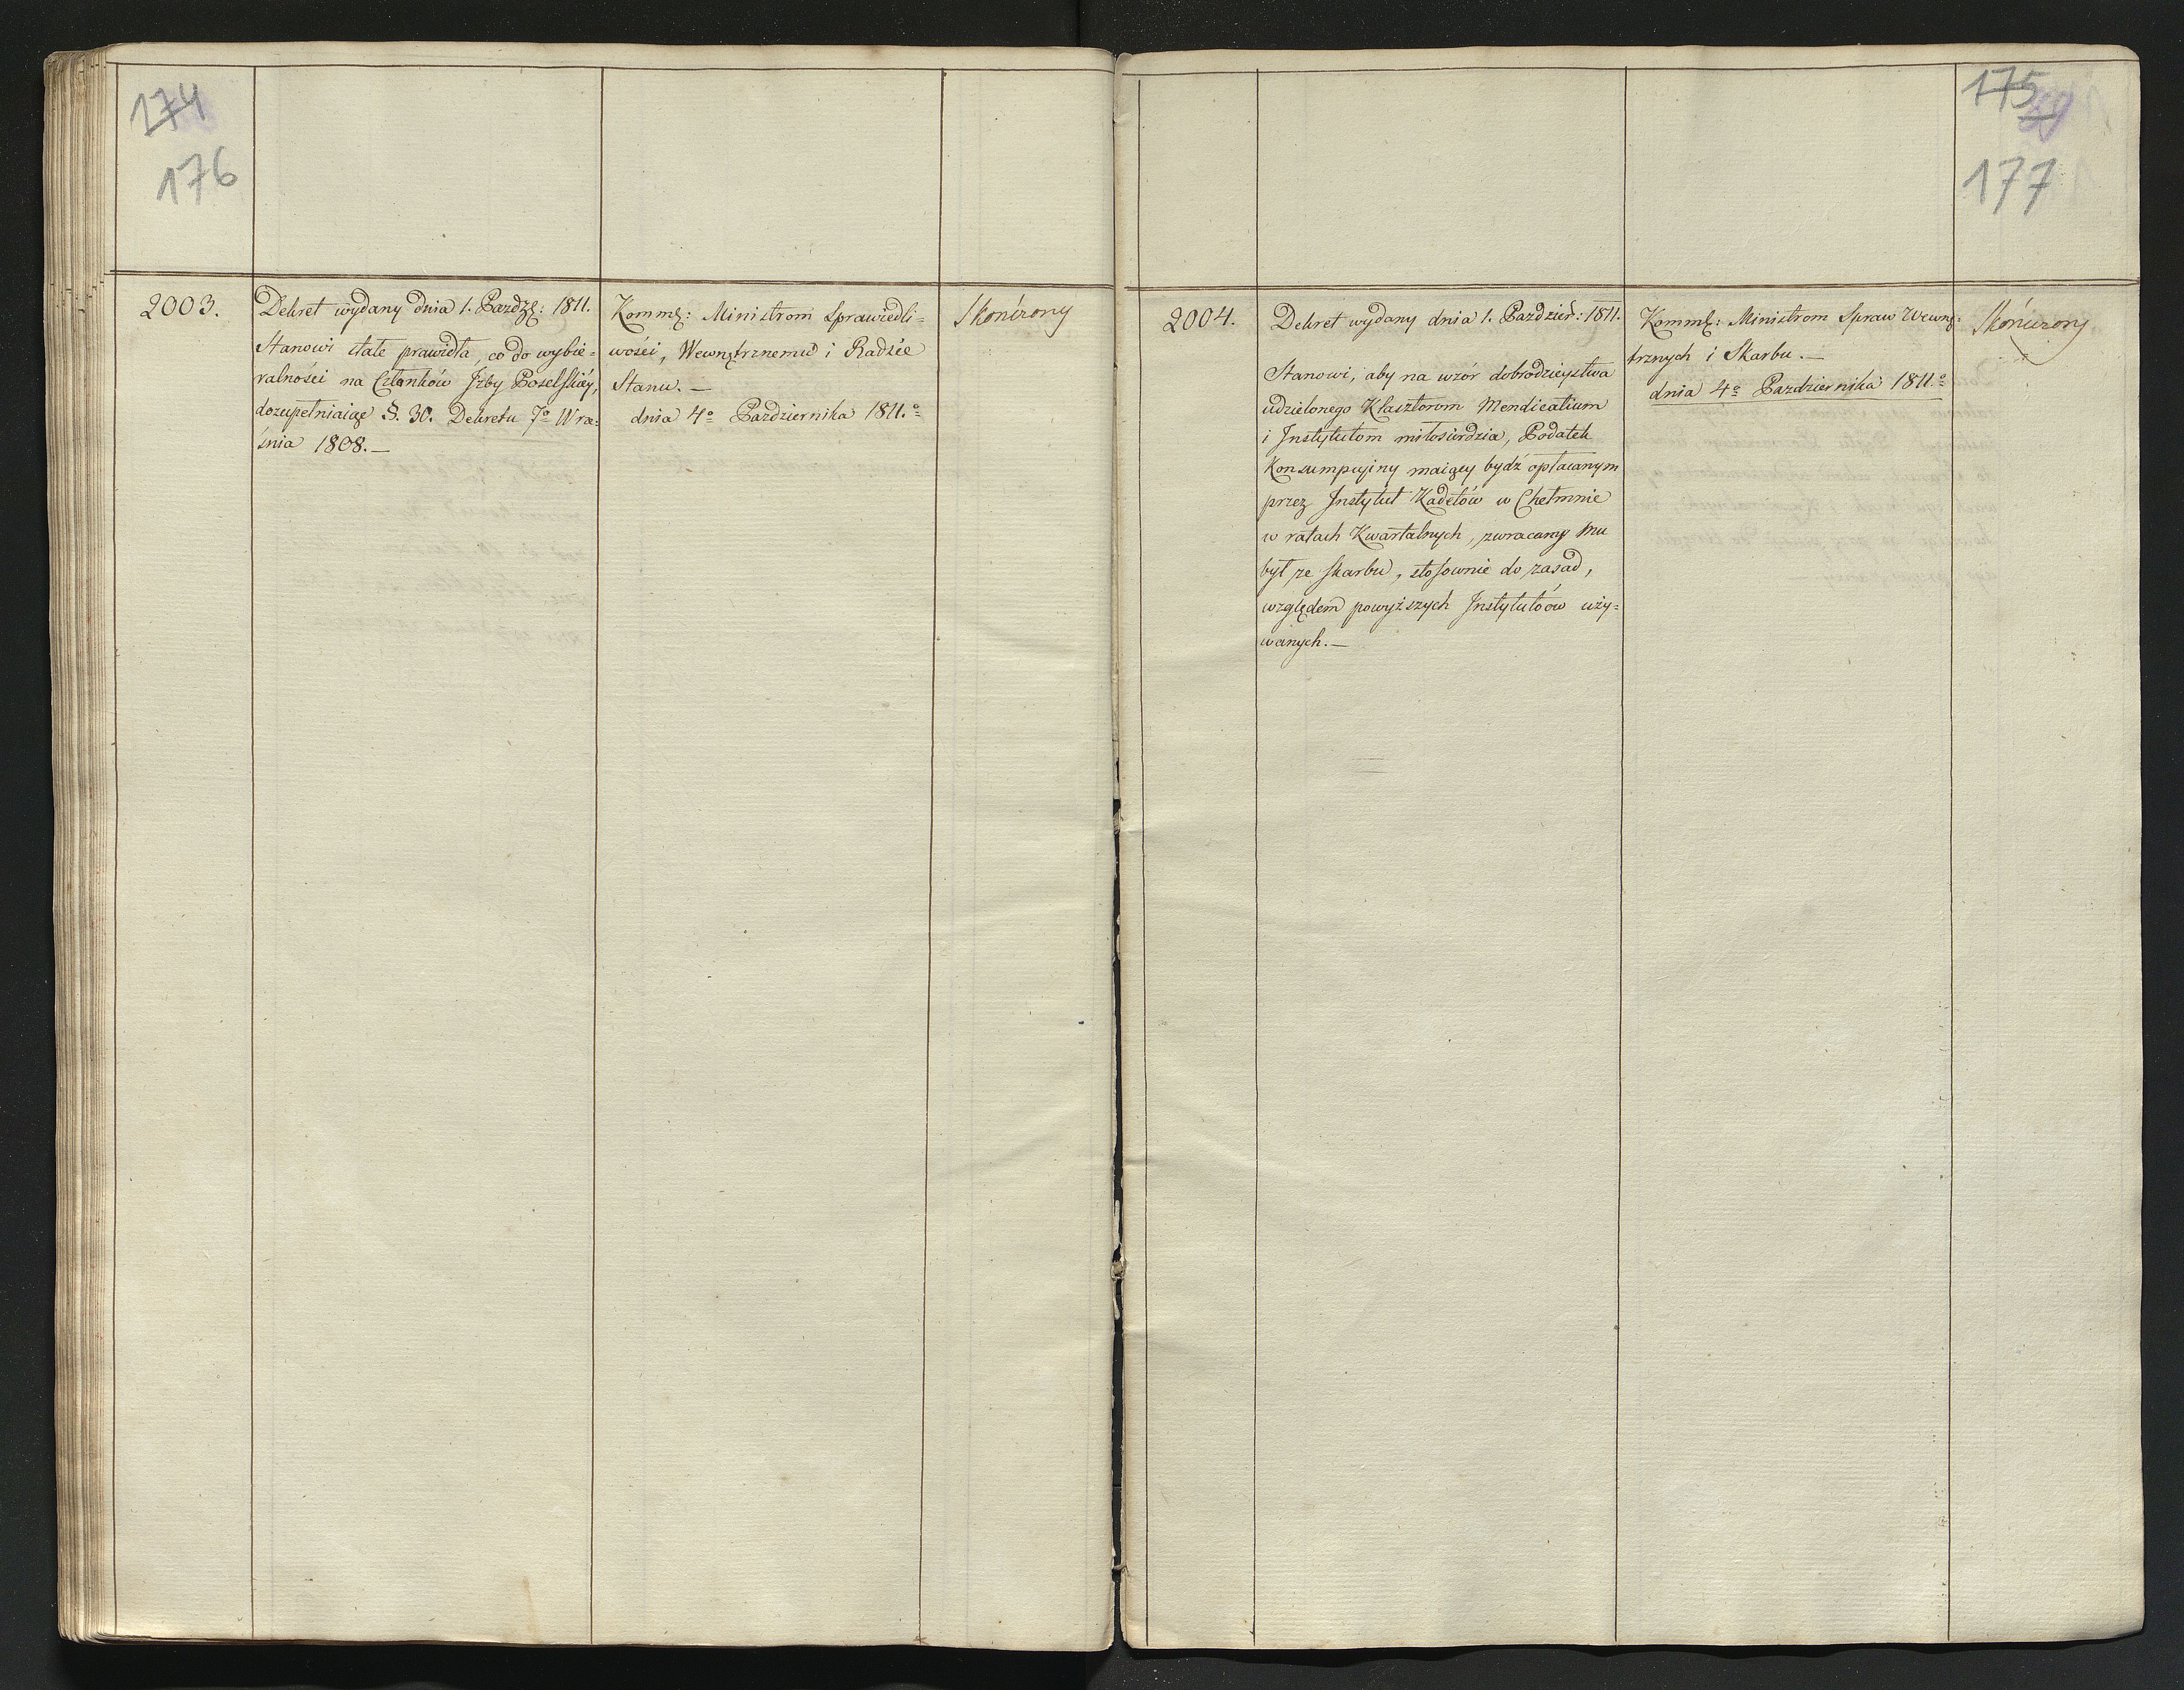 174
176
2003.
Dekret wydany dnia 1. Pazdz: 1811.
Stanowi stałe prawidła, co do wybie=
ralności na Członków Izby Poselskiéy,
dozupełniaiąc §. 30. Dekretu 7º Wrze=
śnia 1808.—
Komm: Ministrom Sprawiedli=
wości, Wewnętrznemu i Radzie
Stanu.—
dnia 4º Pazdziernika 1811.º
Skończony
175
69
177
2004.
Dekret wydany dnia 1. Pazdzier: 1811.
Stanowi, aby na wzór dobrodzieystwa
udzielonego Klasztorom Mendicatium
i Instytutom miłosierdzia, Podatek
Konsumpcyiny maiący bydź opłacanym
przez Instytut Kadetów w Chełmnie
w ratach Kwartalnych, zwracany mu
był ze skarbu, stosownie do zasad,
względem powyższych Instytutóow uży=
wanych.—
Komm: Ministrom Spraw Wewnę=
trznych i Skarbu.—
dnia 4º Pazdziernika 1811.º
Skończony